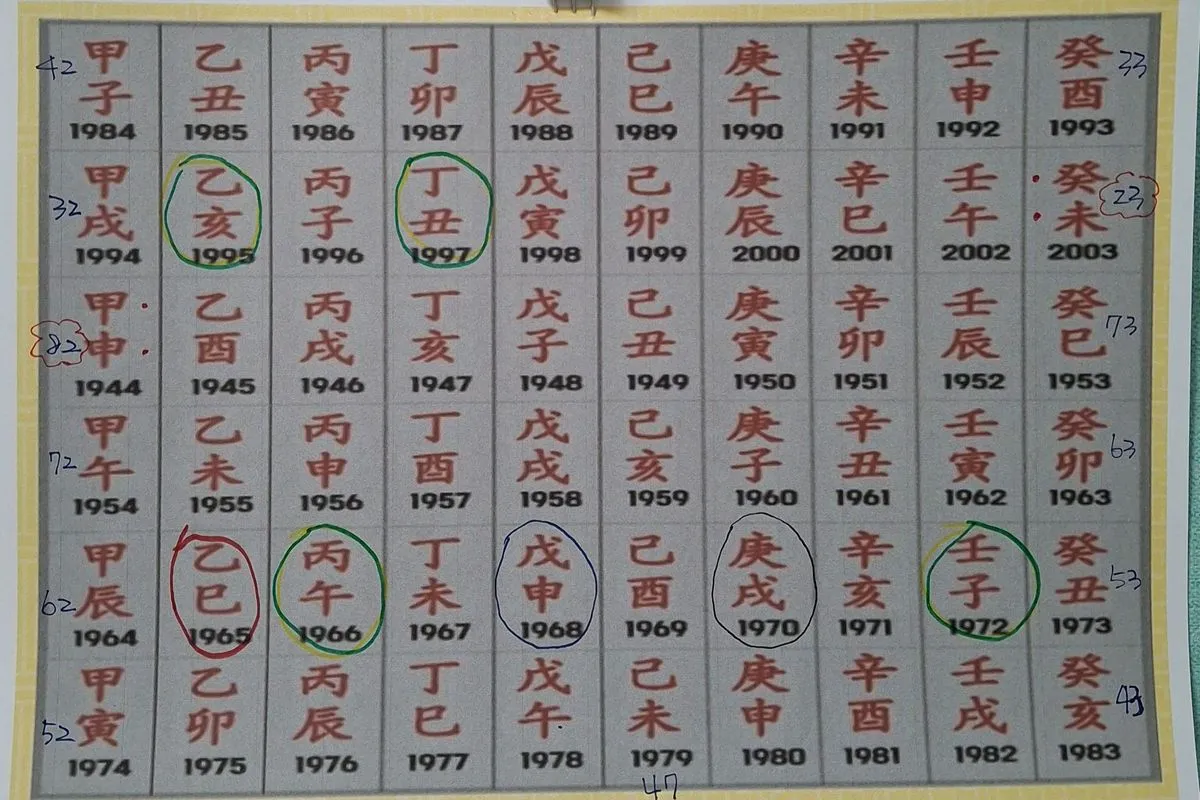 42 甲 乙 丙 丁 戊 己 庚 辛 壬 癸 33
子 丑 寅 卯 辰 巳 午 未 申 酉
1984 1985 1986 1987 1988 1989 1990 1991 1992 1993
32 甲 乙 丙 丁 戊 己 庚 辛 壬 癸 23
戌 亥 子 丑 寅 卯 辰 巳 午 未
1994 1995 1996 1997 1998 1999 2000 2001 2002 2003
甲 乙 丙 丁 戊 己 庚 辛 壬 癸 73
82 申 酉 戌 亥 子 丑 寅 卯 辰 巳
1944 1945 1946 1947 1948 1949 1950 1951 1952 1953
甲 乙 丙 丁 戊 己 庚 辛 壬 癸 63
72 午 未 申 酉 戌 亥 子 丑 寅 卯
1954 1955 1956 1957 1958 1959 1960 1961 1962 1963
甲 乙 丙 丁 戊 己 庚 辛 壬 癸 53
62 辰 巳 午 未 申 酉 戌 亥 子 丑
1964 1965 1966 1967 1968 1969 1970 1971 1972 1973
甲 乙 丙 丁 戊 己 庚 辛 壬 癸 43
52 寅 卯 辰 巳 午 未 申 酉 戌 亥
1974 1975 1976 1977 1978 1979 1980 1981 1982 1983
47